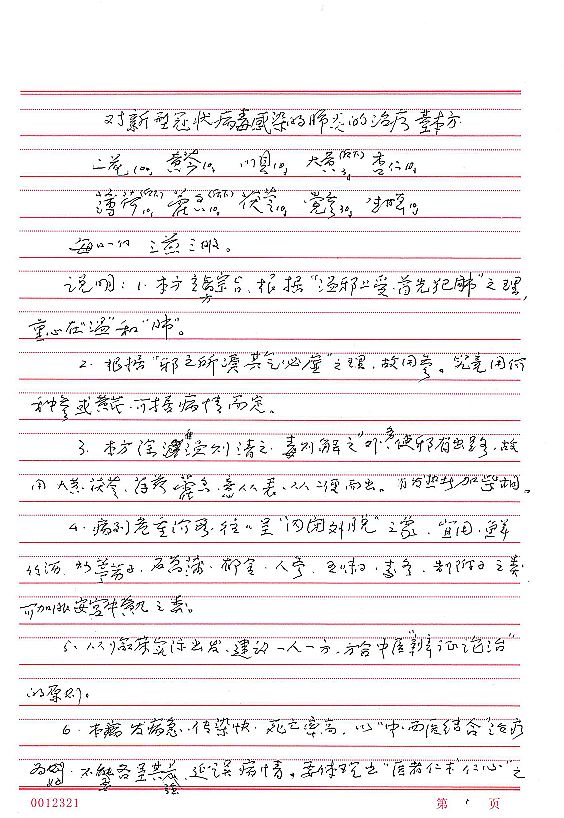 对新型冠状病毒感染的肺炎的治疗基本方
二花10g 黄芩10g 川贝10g 大黄(后下)3g 杏仁10g
薄荷(后下)10g 藿香(后下)10g 茯苓10g 党参30g 生
每日一付 三服。
说明：1. 本方 根据"温邪上受，首先犯肺"之理，
重心在"温"和"肺"。
2. 根据"邪之所凑其气必虚"之理，故用参。究竟用何
种参或黄芪，可据病情而定。
3. 本方除 温则清之，毒则解之"外，使邪有出路，故
用大黄、茯苓、薄荷、藿香，意从表、从二便而出。
4. 病到危重阶段，往往呈"内闭外脱"之象，宜用鲜
竹沥、 石菖蒲、郁金、人参、五味、麦冬、制附子之类
可加服安宫牛黄丸之类。
5. 从临床实际出发，建议一人一方，方合中医"辨证论治"
的原则。
6. 本病发病急，传染快，死亡率高，以"中西医结合"治疗
为 ，不能各呈其 ，延误病情。要体现出"医者仁术仁心"之
0012321 第 1 页